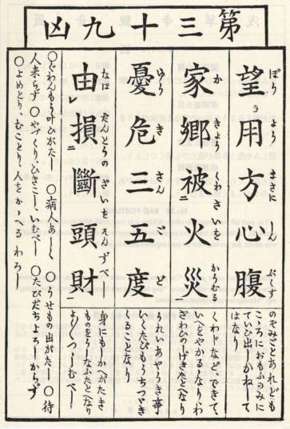 第三十九凶
望用方心腹
のぞみごとあれども
こゝろにおもふのみに
ていひ出しかねて
はなり
家郷被火災
くわじなどできて
いへをやかるゝなり、わ
ざわひのしげきたとへなり
憂危三五度
うれいあやうき事
いくたびもうちつゞき
くることなり
由損斷頭財
身にもかへがたき
ものをうしなふたとへなり
つゝしむべし
叶ひがたし ○病人あしゝ ○うせもの出がたし ○待
人来らず ○やづくり、ひきこし、いむべし ○たびだちよろしからず
○よめとり、むことり、人をかゝへる わろし